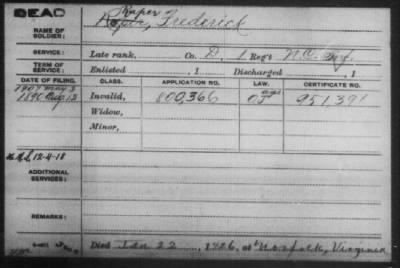 DEAD
Raper
NAME OF SOLDIER: Roper, Frederick
SERVICE: Late rank, Co. D, 1 Reg't N.C. Inf.
TERM OF SERVICE: Enlisted , 1 Discharged , 1
DATE OF FILING. CLASS. APPLICATION NO. LAW. CERTIFICATE NO.
1907 May 3
1890 Aug 13 Invalid, 800,366 951,391
Widow,
Minor,
12-4-18
ADDITIONAL SERVICES:
REMARKS:
Died Jan 22, 1926, at Norfolk, Virginia